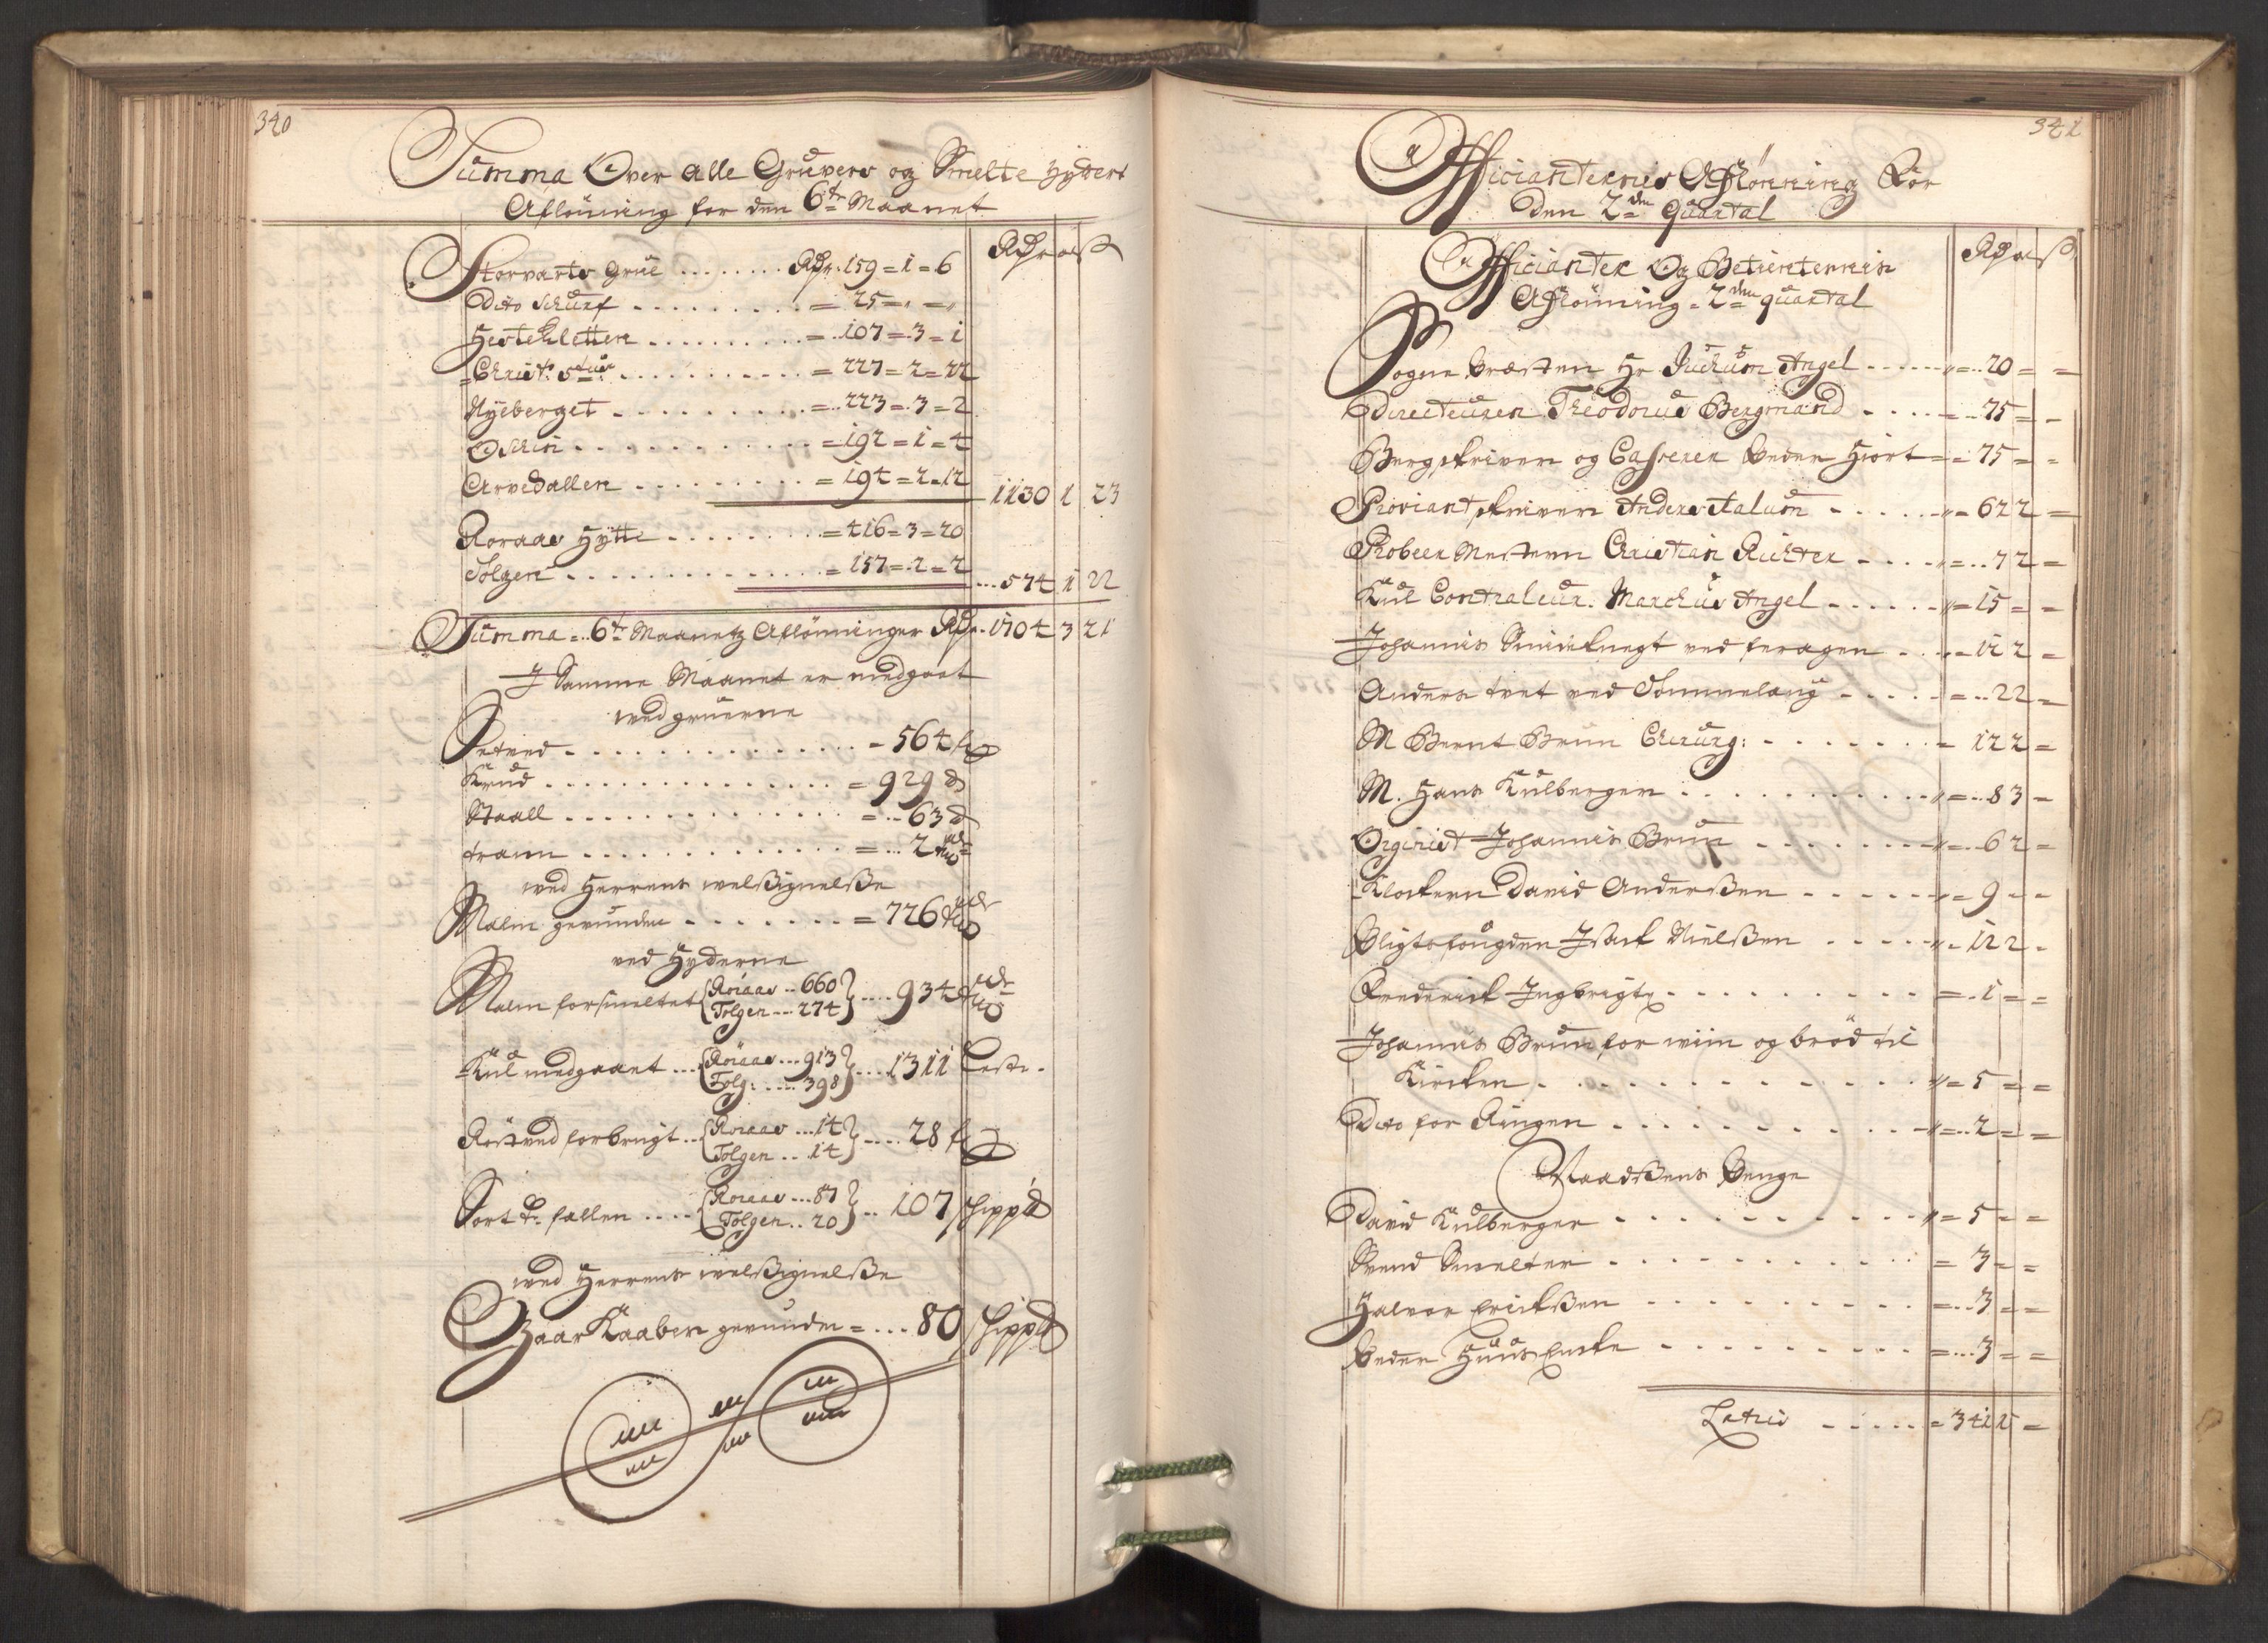 340
Summa Over alle Gruvers og Smelte Hytters
Aflönning for den 6te Maanet
Rdr ort ß
Storvarts Grue ........ Rdr. 159 = 1 = 6
Dito Schurf ......... = 25 = " = "
Hesteklettem ......... = 107 = 3 = 1
Christ: 5tus ......... = 227 = 2 = 22
Nyeberget ......... = 223 = 3 = 2
Oschin ......... = 192 = 1 = 4
Arvedallen ......... = 194 = 2 = 12
1130 1 23
Roraas Hytte ........ = 416 = 3 = 20
Tolgen ......... = 157 = 2 = 2
... 574 1 22
Summa = 6te Maanetz Aflönninger Rdr. 1704 3 21
I Samme Maanet er medgaaet
wed gruerne
Setved ......... = 564 f
Krud ......... = 929 ℔
Staall ......... = 63 ℔
trann ......... = 2 tdr
wed Herrens welßignelße
Malm gevunden ....... = 726 tdr
ved Hyderne
Malm forsmeltet {Röraas .. 660 Tolgen ... 274} .... 934 tdr
Kul medgaaet ... {Röraas ... 913 Tolg: .... 398} .... 1311 Lester
Röstved forbrugt .. {Roraas ... 14 Tolgen .. 14} .... 28 f
Sort K: fallen .... {Roraas ... 87 Tolgen .. 20} .. 107 schipp℔
wed Herrens welßignelße
Gaar Kaaber gevunden = ... 80 schipp℔
341
Officianternis Aflönning For
Den 2den Quartal
Officianter Og Betienternis
Aflönning = 2den quartal
Rdr ort ß
Sogne Præsten Hr Juchum Angel ..... = .. 20 = =
Directeuren Theodorus Bergmand .... = .. 75 = =
Bergskriver og Casserer Peder Hiort = = 75 = =
Proviantskriver Anders Aalum ..... = 62 2 =
Probeer Mestern Christian Richter .... = .. 7 2 =
Kul Contraleur. Marchus Angel ...... = 15 = =
Johannis Smideknegt ved feragen .... = 12 2 =
Anders tvet ved Sommelang ..... = .. 2 2 =
M Bernt Brun Chirurg: ....... = 12 2 =
M. Hans Kulberger ........... = .. 8 3 =
Orginist Johannis Brun ....... = .. 6 2 =
Klockern David Anderßen ...... = 9 = =
Pligtsfougden Isack Nielßen ..... = 12 2 =
Frederick Ingbrigtz ......... = . 1 = =
Johannis Brun for wiin og bröd til
Kircken ............ = 5 = =
Dito for Ringen ........... = .. 2 = =
Naadßens Penge
David Kulberger .......... = 5 = =
Svend Smelter ......... = 3 = =
Halvor Erickßen ......... = .. 3 = =
Peder Huus Encke ......... = ... 3 = =
Latus ..... = 341 1 =